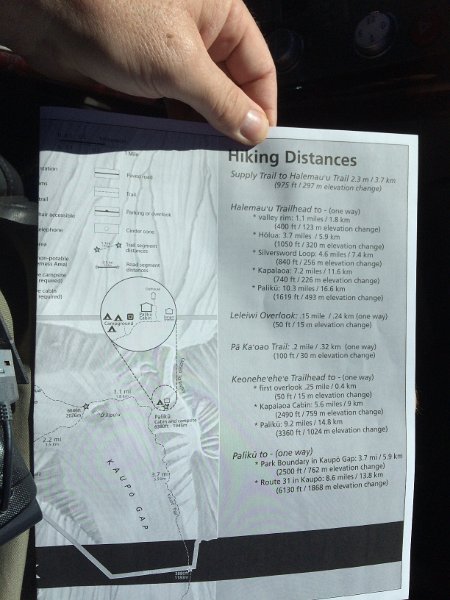 Hiking Distances
Supply Trail to Halemau'u Trail 2.3 m / 3.7 km
(975 ft / 297 m elevation change)
Halemau'u Trailhead to - (one way)
* valley rim: 1.1 miles / 1.8 km
(400 ft / 123 m elevation change)
* Hōlua: 3.7 miles / 5.9 km
(1050 ft / 320 m elevation change)
* Silversword Loop: 4.6 miles / 7.4 km
(840 ft / 256 m elevation change)
* Kapalaoa: 7.2 miles / 11.6 km
(740 ft / 226 m elevation change)
* Palikū: 10.3 miles / 16.6 km
(1619 ft / 493 m elevation change)
Leleiwi Overlook: .15 mile / .24 km (one way)
(50 ft / 15 m elevation change)
Pā Ka'oao Trail: .2 mile / .32 km (one way)
(100 ft / 30 m elevation change)
Keonehe'ehe'e Trailhead to - (one way)
* first overlook .25 mile / 0.4 km
(50 ft / 15 m elevation change)
* Kapalaoa Cabin: 5.6 miles / 9 km
(2490 ft / 759 m elevation change)
* Palikū: 9.2 miles / 14.8 km
(3360 ft / 1024 m elevation change)
Palikū to - (one way)
* Park Boundary in Kaupō Gap: 3.7 mi / 5.9 km
(2500 ft / 762 m elevation change)
* Route 31 in Kaupo: 8.6 miles / 13.8 km
(6130 ft / 1868 m elevation change)
1 Mile
Paved road
Trail
Parking or overlook
Cinder cone
Trail segment
distances
Road segment
distances
station
trail
accessible
telephone
area
non-potable
required)
Palikū
Cabin
Campground
1.1 mi
2.2 mi
Palikū
Cabin and campsite
3.7 mi
KAUPŌ GAP